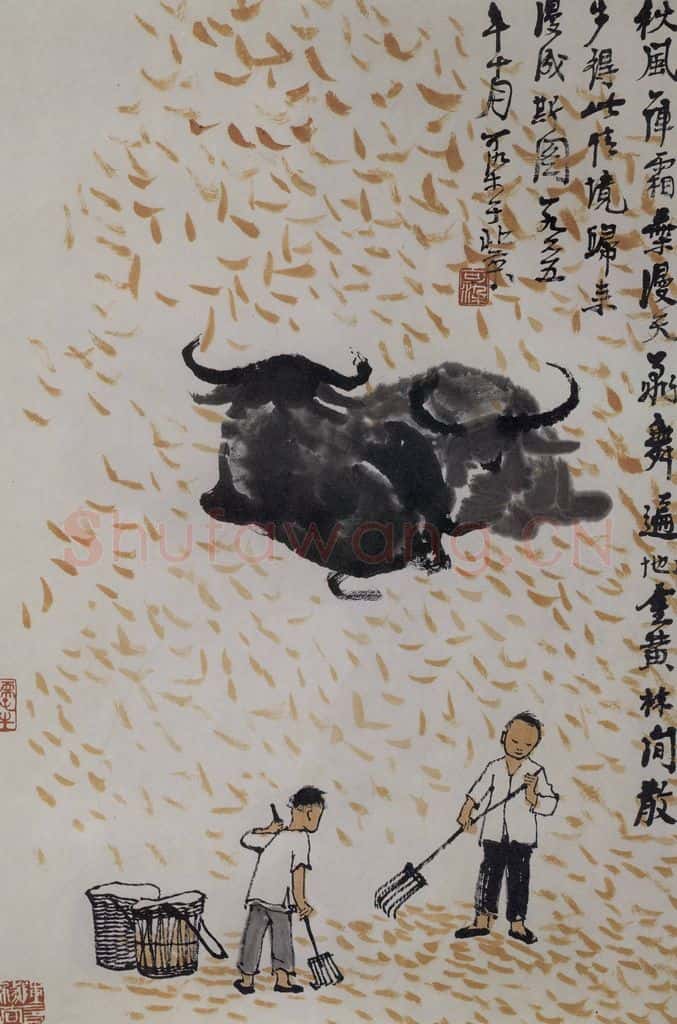 秋風陣霜葉漫天飛舞遍地金黄林间散
步得此情境歸来
漫成斯图一九六五
年十月可染于北京
可染
Shufawang.CN